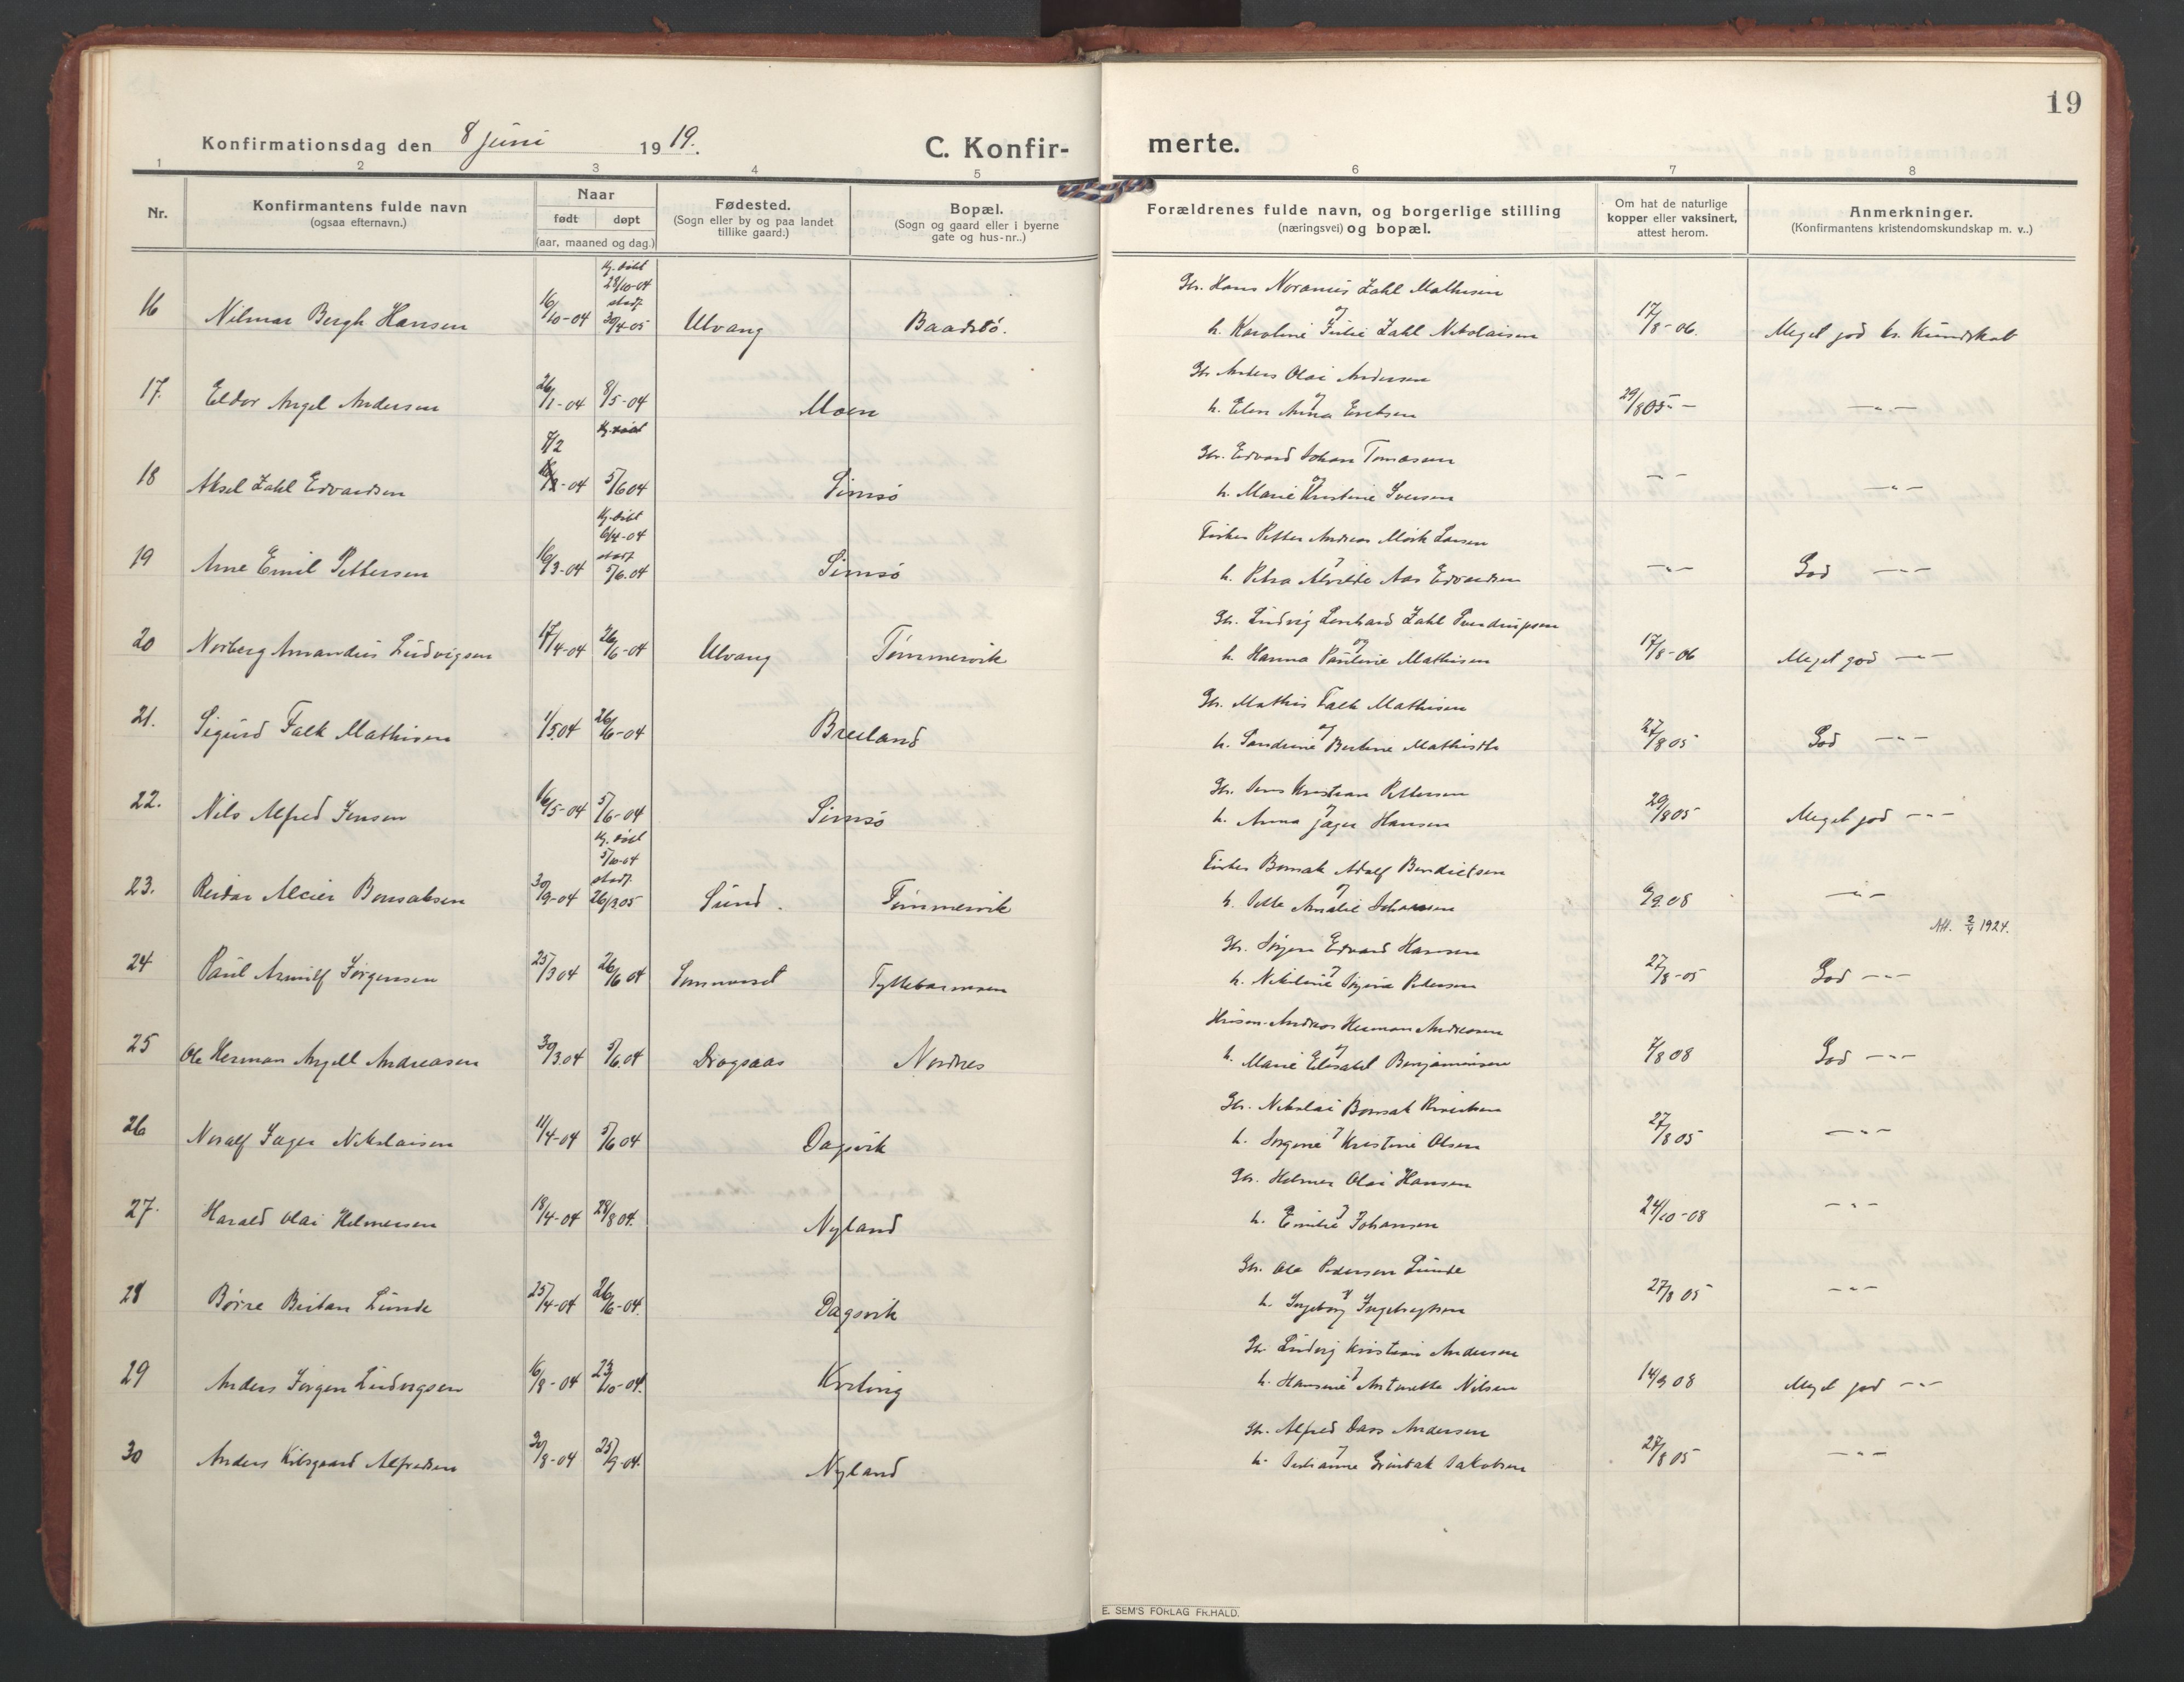 19
Konfirmationsdag den 8 juni 1919.
C. Konfir-
merte.
1 2 3 4 5 6 7 8
Nr.
Konfirmantens fulde navn
(ogsaa efternavn.)
Naar
født døpt
(aar, maaned og dag.)
Fødested.
(Sogn eller by og paa landet
tillike gaard.)
Bopæl.
(Sogn og gaard eller i byerne
gate og hus-nr..)
Forældrenes fulde navn, og borgerlige stilling
(næringsvei) og bopæl.
Om hat de naturlige
kopper eller vaksinert,
attest herom.
Anmerkninger.
(Konfirmantens kristendomskundskap m. v..)
Kj. døbt
28/10-04
stadf.
Gbr. Hans Noranius Zahl Mathisen
og
16 Hilmar Bergh Hansen 16/10-04 30/4-05 Ulvang Baadstø. h. Karoline Julie Zahl Nikolaisen 17/8-06. Meget god kr. Kundskab
Gbr Anders Olai Andersen
og
17. Eldor Angel Andersen 26/1-04 8/5-04 Moen h. Elen Anna Eritsen 29/8 05 - -"-
Kj. døbt
7/2
Gbr. Edvard Johan Tomasen
og
18 Aksel Zahl Edvardsen -04 5/6 04 Simsø h. Marie Kristine Iversen - - -"-
Kj. døbt
6/4-04
stadf.
Fisker Petter Andreas Mørk Larsen
og
19 Arne Emil Pettersen 16/3-04 5/6.04 Simsø h. Petra Alvilde Aas Edvardsen -"- God -"-
Gbr. Ludvig Lenhard Zahl
og
20 Norberg Amandus Ludvigsen 17/4-04 26/6-04 Ulvang Tømmervik h. Hanna Pauline Mathisen 17/8-06 Meget god -"-
Gbr. Mathis Falk Mathisen
og
21. Sigurd Falk Mathisen 1/5 04 26/6-04 Breiland h. Sandrine Berline 27/8 05 God -"-
Gbr. Jens Kristian Pettersen
og
22. Nils Alfred Jensen 16/5-04 5/6-04 Simsø h. Anna Jæger Hansen 29/8 05 Meget god -"-
Kj. døbt
5/10-04
stadf.
Fisker Bonsak Adolf Bendictsen
og
23. Reidar Meier Bonsaksen 30/9-04 26/3 05 Sund. Tømmervik h. Amalie Johansen 9/9.08 -"-
Att. 2/4 1924.
Gbr. Jørgen Edvard Hansen
og
24 Paul Arnulf Jørgensen 25/3 04 26/6 04 Sommerset h. Nikoline Petersen 27/8-05 God -"-
Andreas Herman Andreasen
og
25 Ole Herman Angell Andreasen 30/3.04 5/6.04 Dragsaas Nordnes h. Marie Elisabet Benjaminsen 7/8 08 God -"-
Gbr. Nikolai Bonsak
og
26 Noralf Jæger Nikolaisen 11/4-04 5/6 04 Dagsvik h. Jørgine Kristine Olsen 27/8 05 -"-
Gbr. Helmer Olai Hansen
og
27. Harald Olai Helmersen 18/4-04 28/8 04. Nyland h. Emilie Johansen 24/10-08 -"-
Gbr. Ole Pedersen Lunde
og
28 Børre Lunde 25/4-04 26/6-04. Dagsvik h. Ingeborg Ingebrigtsen 27/8 05 -"-
Gbr Ludvig Kristian Andersen
og
29 Anders Jørgen Ludvigsen 16/8-04 23/10-04. Kvitting h. Hansine Antonette Nilsen 14/9 08 Meget god -"-
Gbr. Alfred Dass Andersen
og
30 Anders Kilsgaard Alfredsen 30/8-04 25/9-04. Nyland h. Jakobsen 27/8 05 -"-
E. SEM'S FORLAG FR.HALD.